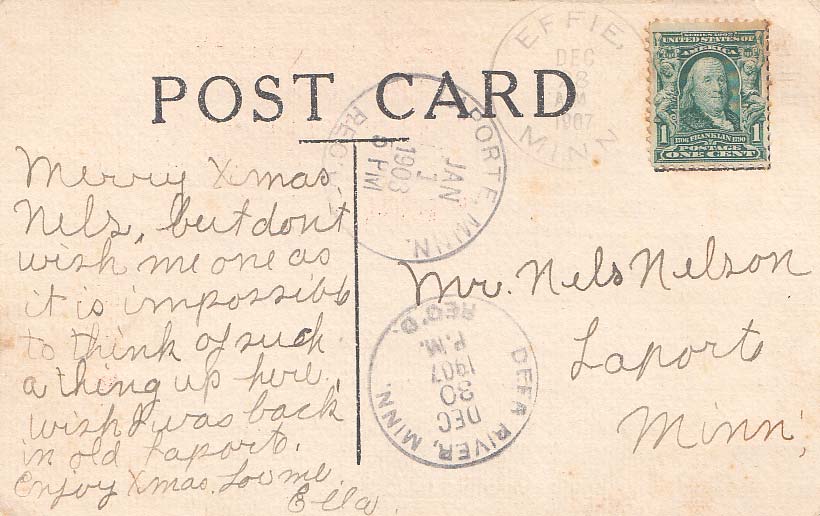 POST CARD
EFFIE,
DEC
8
AM
1907
MINN
SERIES 1902
UNITED STATES OF
AMERICA
1 1706 FRANKLIN 1790 1
POSTAGE
ONE CENT
LAPORTE, MINN.
JAN
1
1908
5 PM
REC'D.
Merry Xmas,
Nels, but dont
wish me one as
it is impossible
to think of such
a thing up here,
wish I was back
in old Laporte.
Enjoy Xmas.
Ella.
Mr. Nels Nelson
Laporte
Minn,
DEER RIVER, MINN.
DEC
30
1907
P.M.
REC'D.